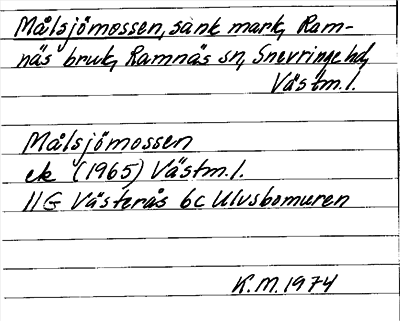 Målsjömossen, sank mark, Ram-
näs bruk, Ramnäs sn, Snevringe hd,
Västm.l.
Målsjömossen
ek (1965) Västm.l.
11G Västerås 6c Ulvsbomuren
K.M. 1974